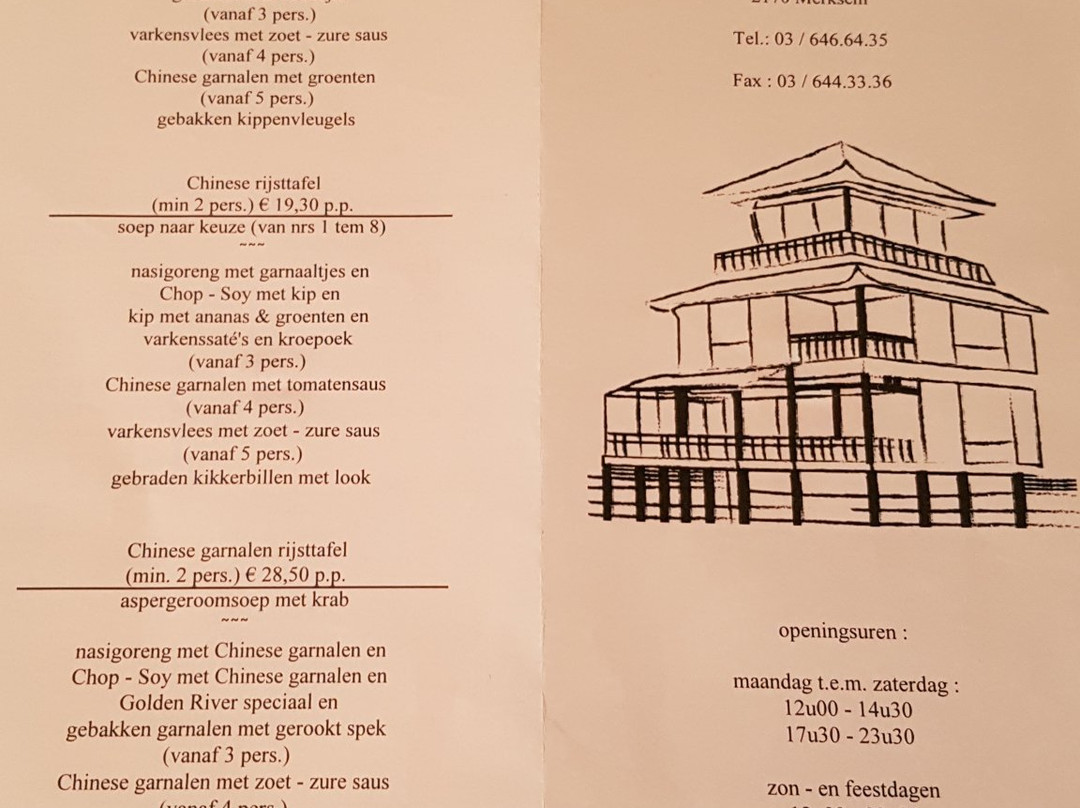 (vanaf 3 pers.)
varkensvlees met zoet - zure saus
(vanaf 4 pers.)
Chinese garnalen met groenten
(vanaf 5 pers.)
gebakken kippenvleugels
Chinese rijsttafel
(min 2 pers.) € 19,30 p.p.
soep naar keuze (van nrs 1 tem 8)
~~~
nasigoreng met garnaaltjes en
Chop - Soy met kip en
kip met ananas & groenten en
varkenssaté's en kroepoek
(vanaf 3 pers.)
Chinese garnalen met tomatensaus
(vanaf 4 pers.)
varkensvlees met zoet - zure saus
(vanaf 5 pers.)
gebraden kikkerbillen met look
Chinese garnalen rijsttafel
(min. 2 pers.) € 28,50 p.p.
aspergeroomsoep met krab
~~~
nasigoreng met Chinese garnalen en
Chop - Soy met Chinese garnalen en
Golden River speciaal en
gebakken garnalen met gerookt spek
(vanaf 3 pers.)
Chinese garnalen met zoet - zure saus
(vanaf 4 pers.)
2170 Merksem
Tel.: 03 / 646.64.35
Fax : 03 / 644.33.36
openingsuren :
maandag t.e.m. zaterdag :
12u00 - 14u30
17u30 - 23u30
zon - en feestdagen